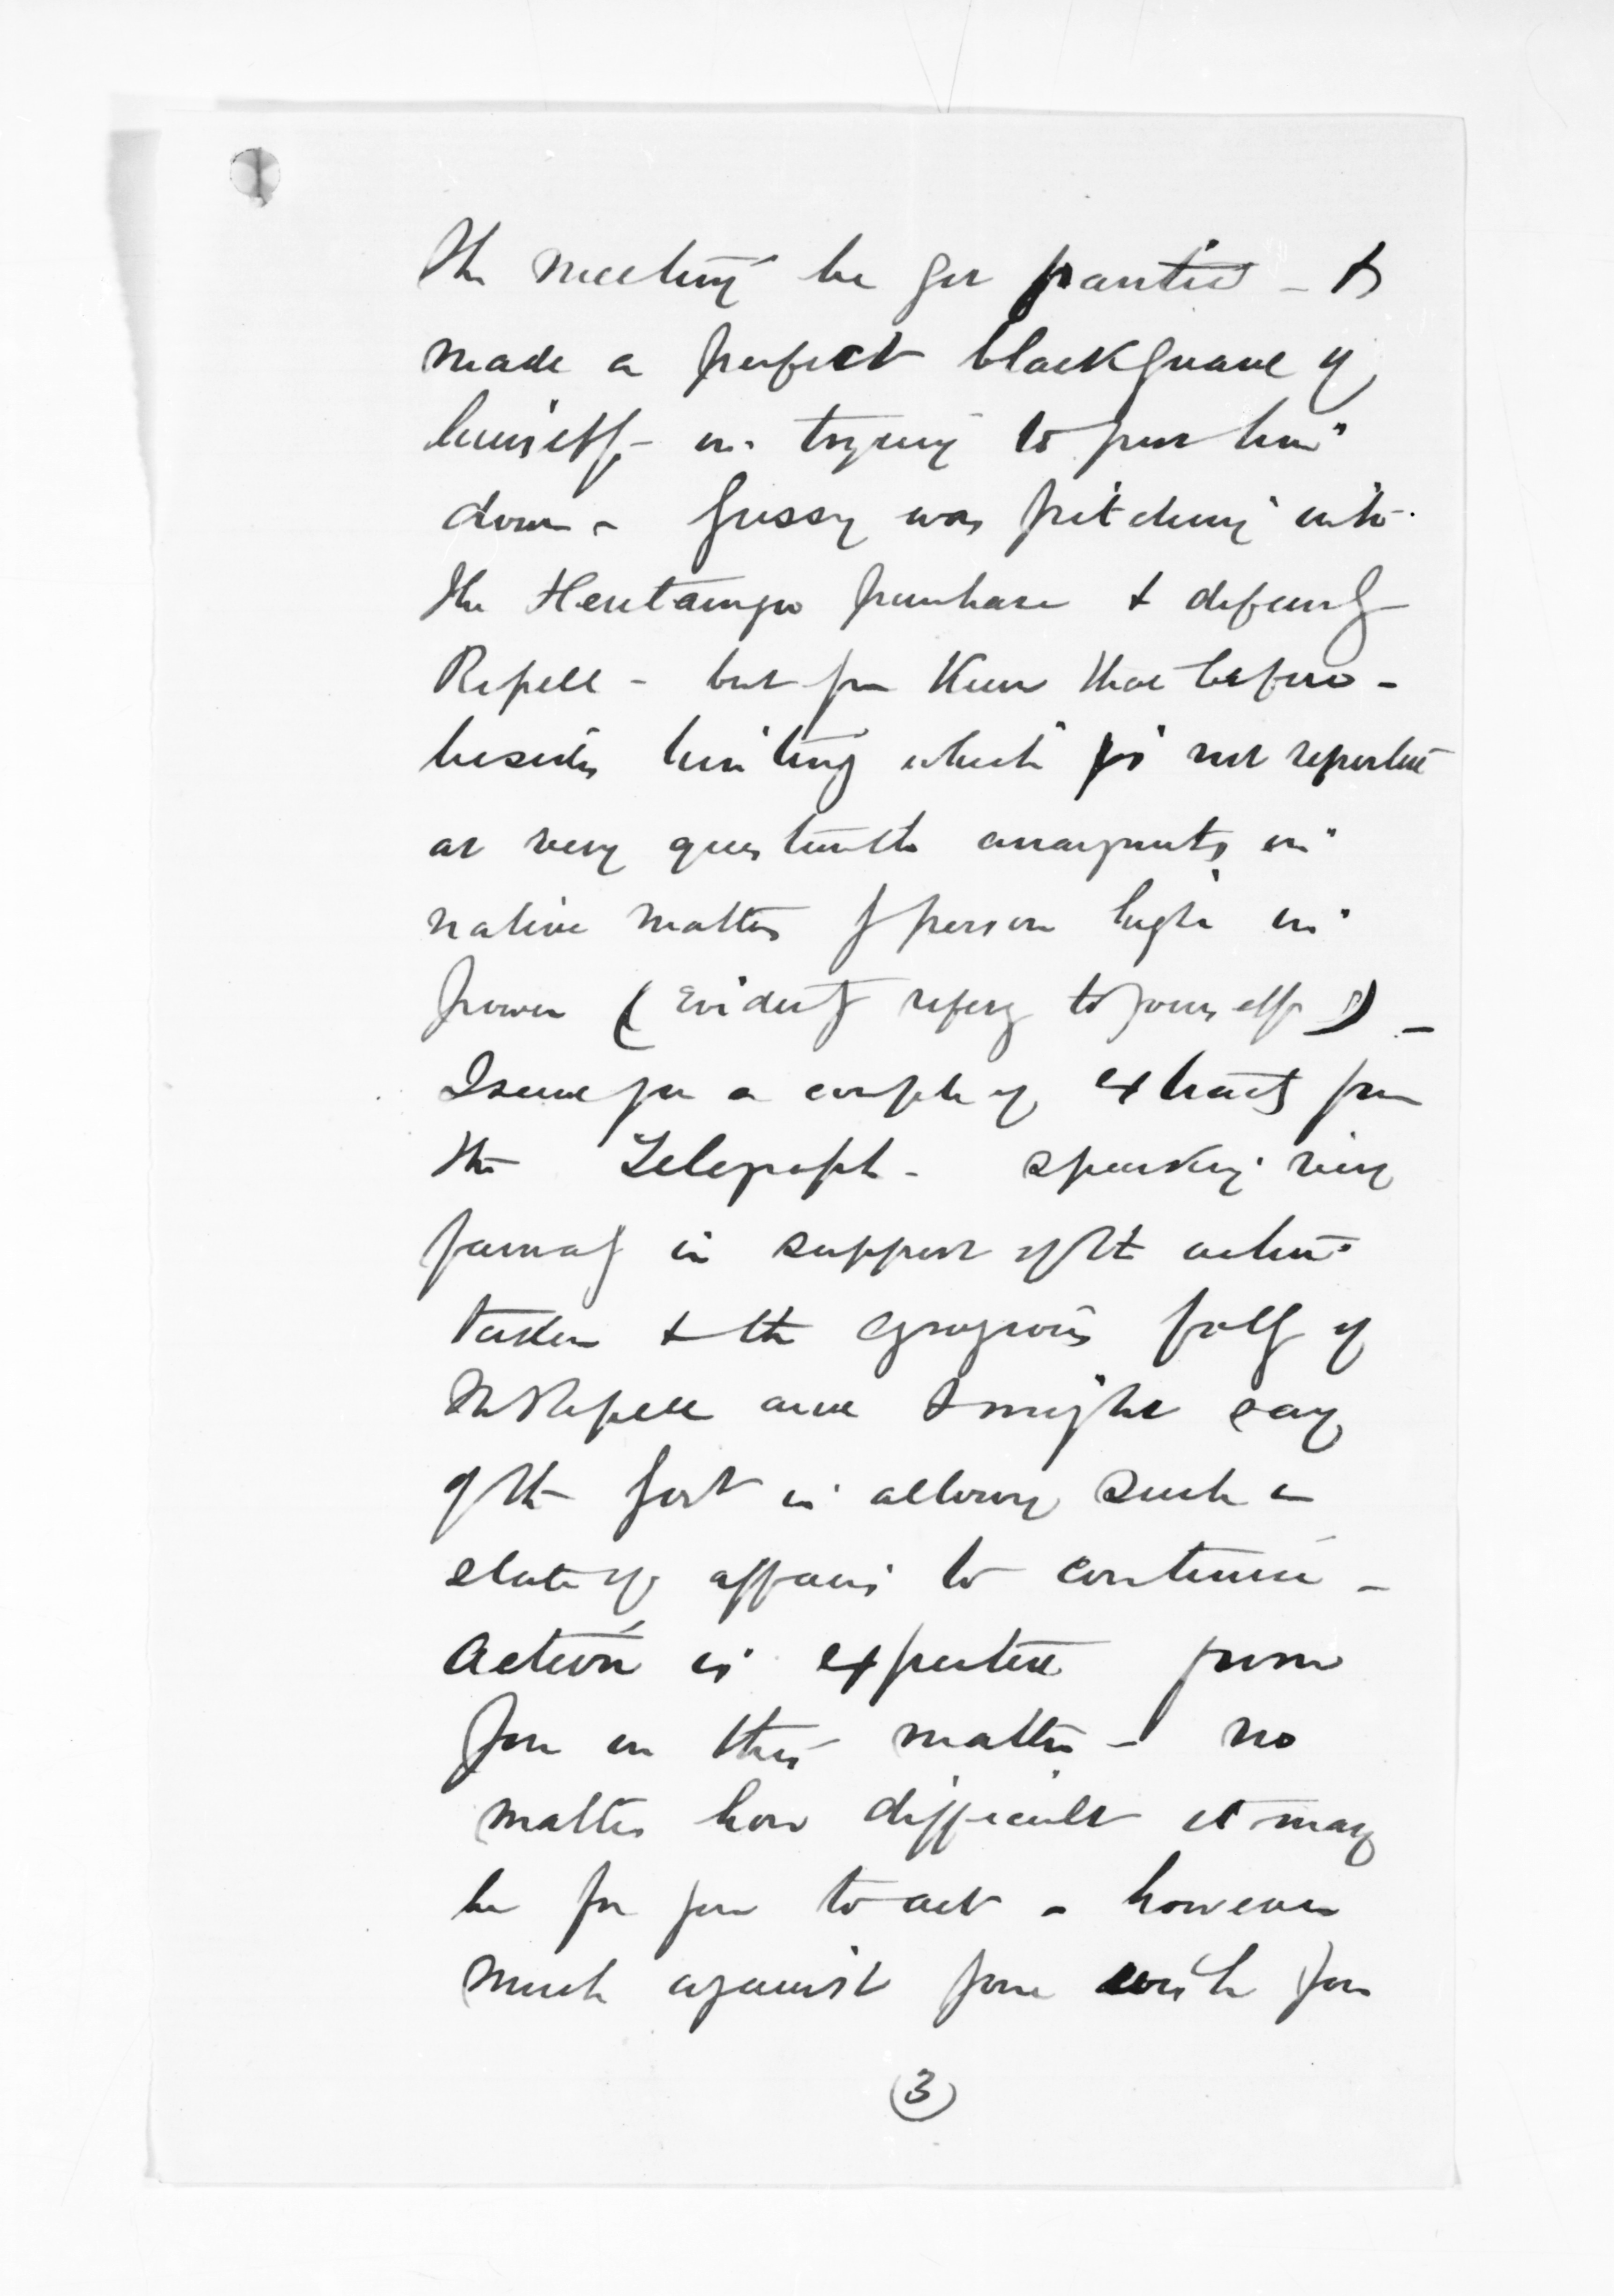 The meeting he got frantic - &
made a perfect blackguard of
himself - in trying to put him
down - Gussy was pitching into
the Heretaunga purchase & defending
Repeal - but you knew that before -
besides hinting which is not reported
at very questionable arrangements in
native matters of person high in
power (Evidently refering to yourself) -
I send you a couple of extracts from
the Telegraph - speaking very
in support of the action
taken & the egregious folly of
the Repeal and I might say
of the Govt in allowing such a
state of affairs to continue -
Action is expected from
you in this matter - no
matter how difficult it may
be for you to act - however
much against your wish you
3